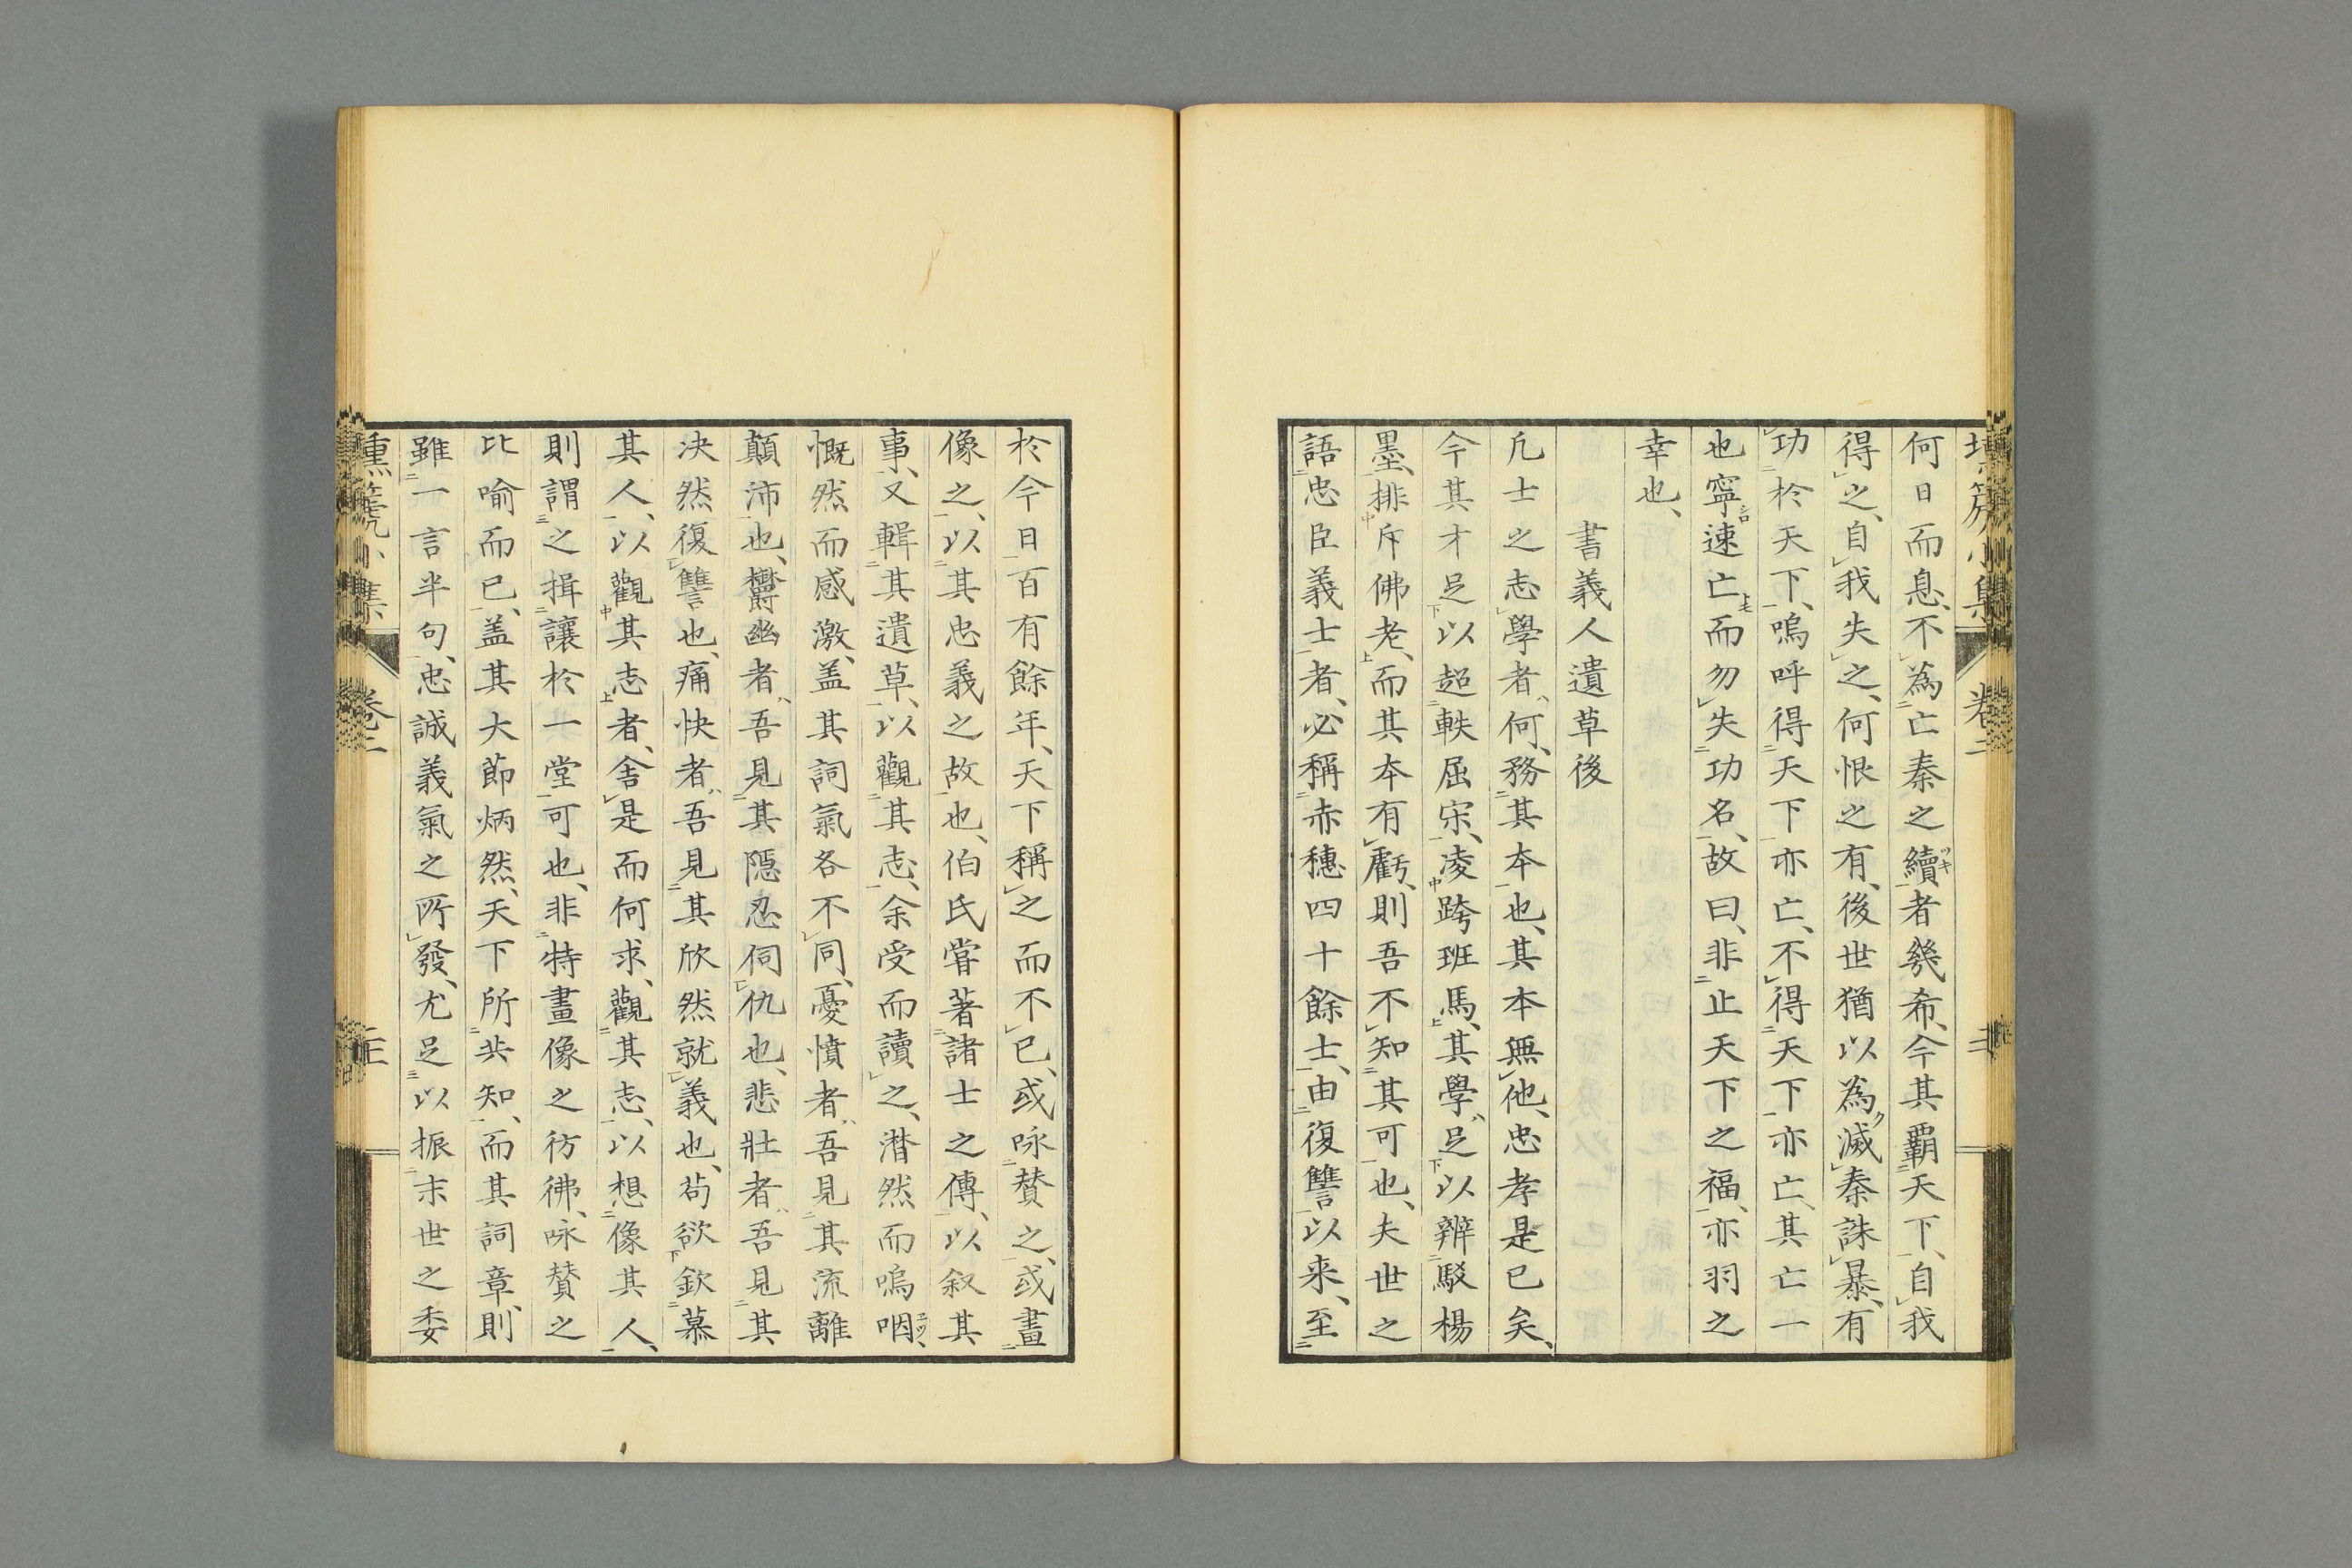 何日而息、不為亡秦之續者幾希、今其覇天下、自我
得之、自我失之、何恨之有、後世猶以為滅秦誅暴、有
功於天下、嗚呼得天下亦亡、不得天下亦亡、其亡一
也、寧速亡而勿失功名、故曰、非止天下之福、亦羽之
幸也、
書義人遺草後
凡士之志學者、何務其本也、其本無他、忠孝是已矣、
今其才足以超軼屈宋、凌跨班馬、其學足以辨駁楊
墨、排斥佛老、而其本有虧、則吾不知其可也、夫世之
語忠臣義士者、必稱赤穗四十餘士、由復讐以来、至
於今日百有餘年、天下稱之而不已、或咏賛之、或畫
像之、以其忠義之故也、伯氏嘗著諸士之傳、以叙其
事、又輯其遺草、以觀其志、余受而讀之、潜然而嗚咽、
慨然而感激、盖其詞氣各不同、憂憤者、吾見其流離
顛沛也、欝幽者、吾見其隠忍伺仇也、悲壯者、吾見其
决然復讐也、痛快者、吾見其欣然就義也、苟欲欽慕
其人、以觀其志者、舍是而何求、觀其志、以想像其人、
則謂之揖讓於一堂可也、非特畫像之彷彿、咏賛之
比喻而已、盖其大節炳然、天下所共知、而其詞章、則
雖一言半句、忠誠義氣之所發、尤足以振末世之委